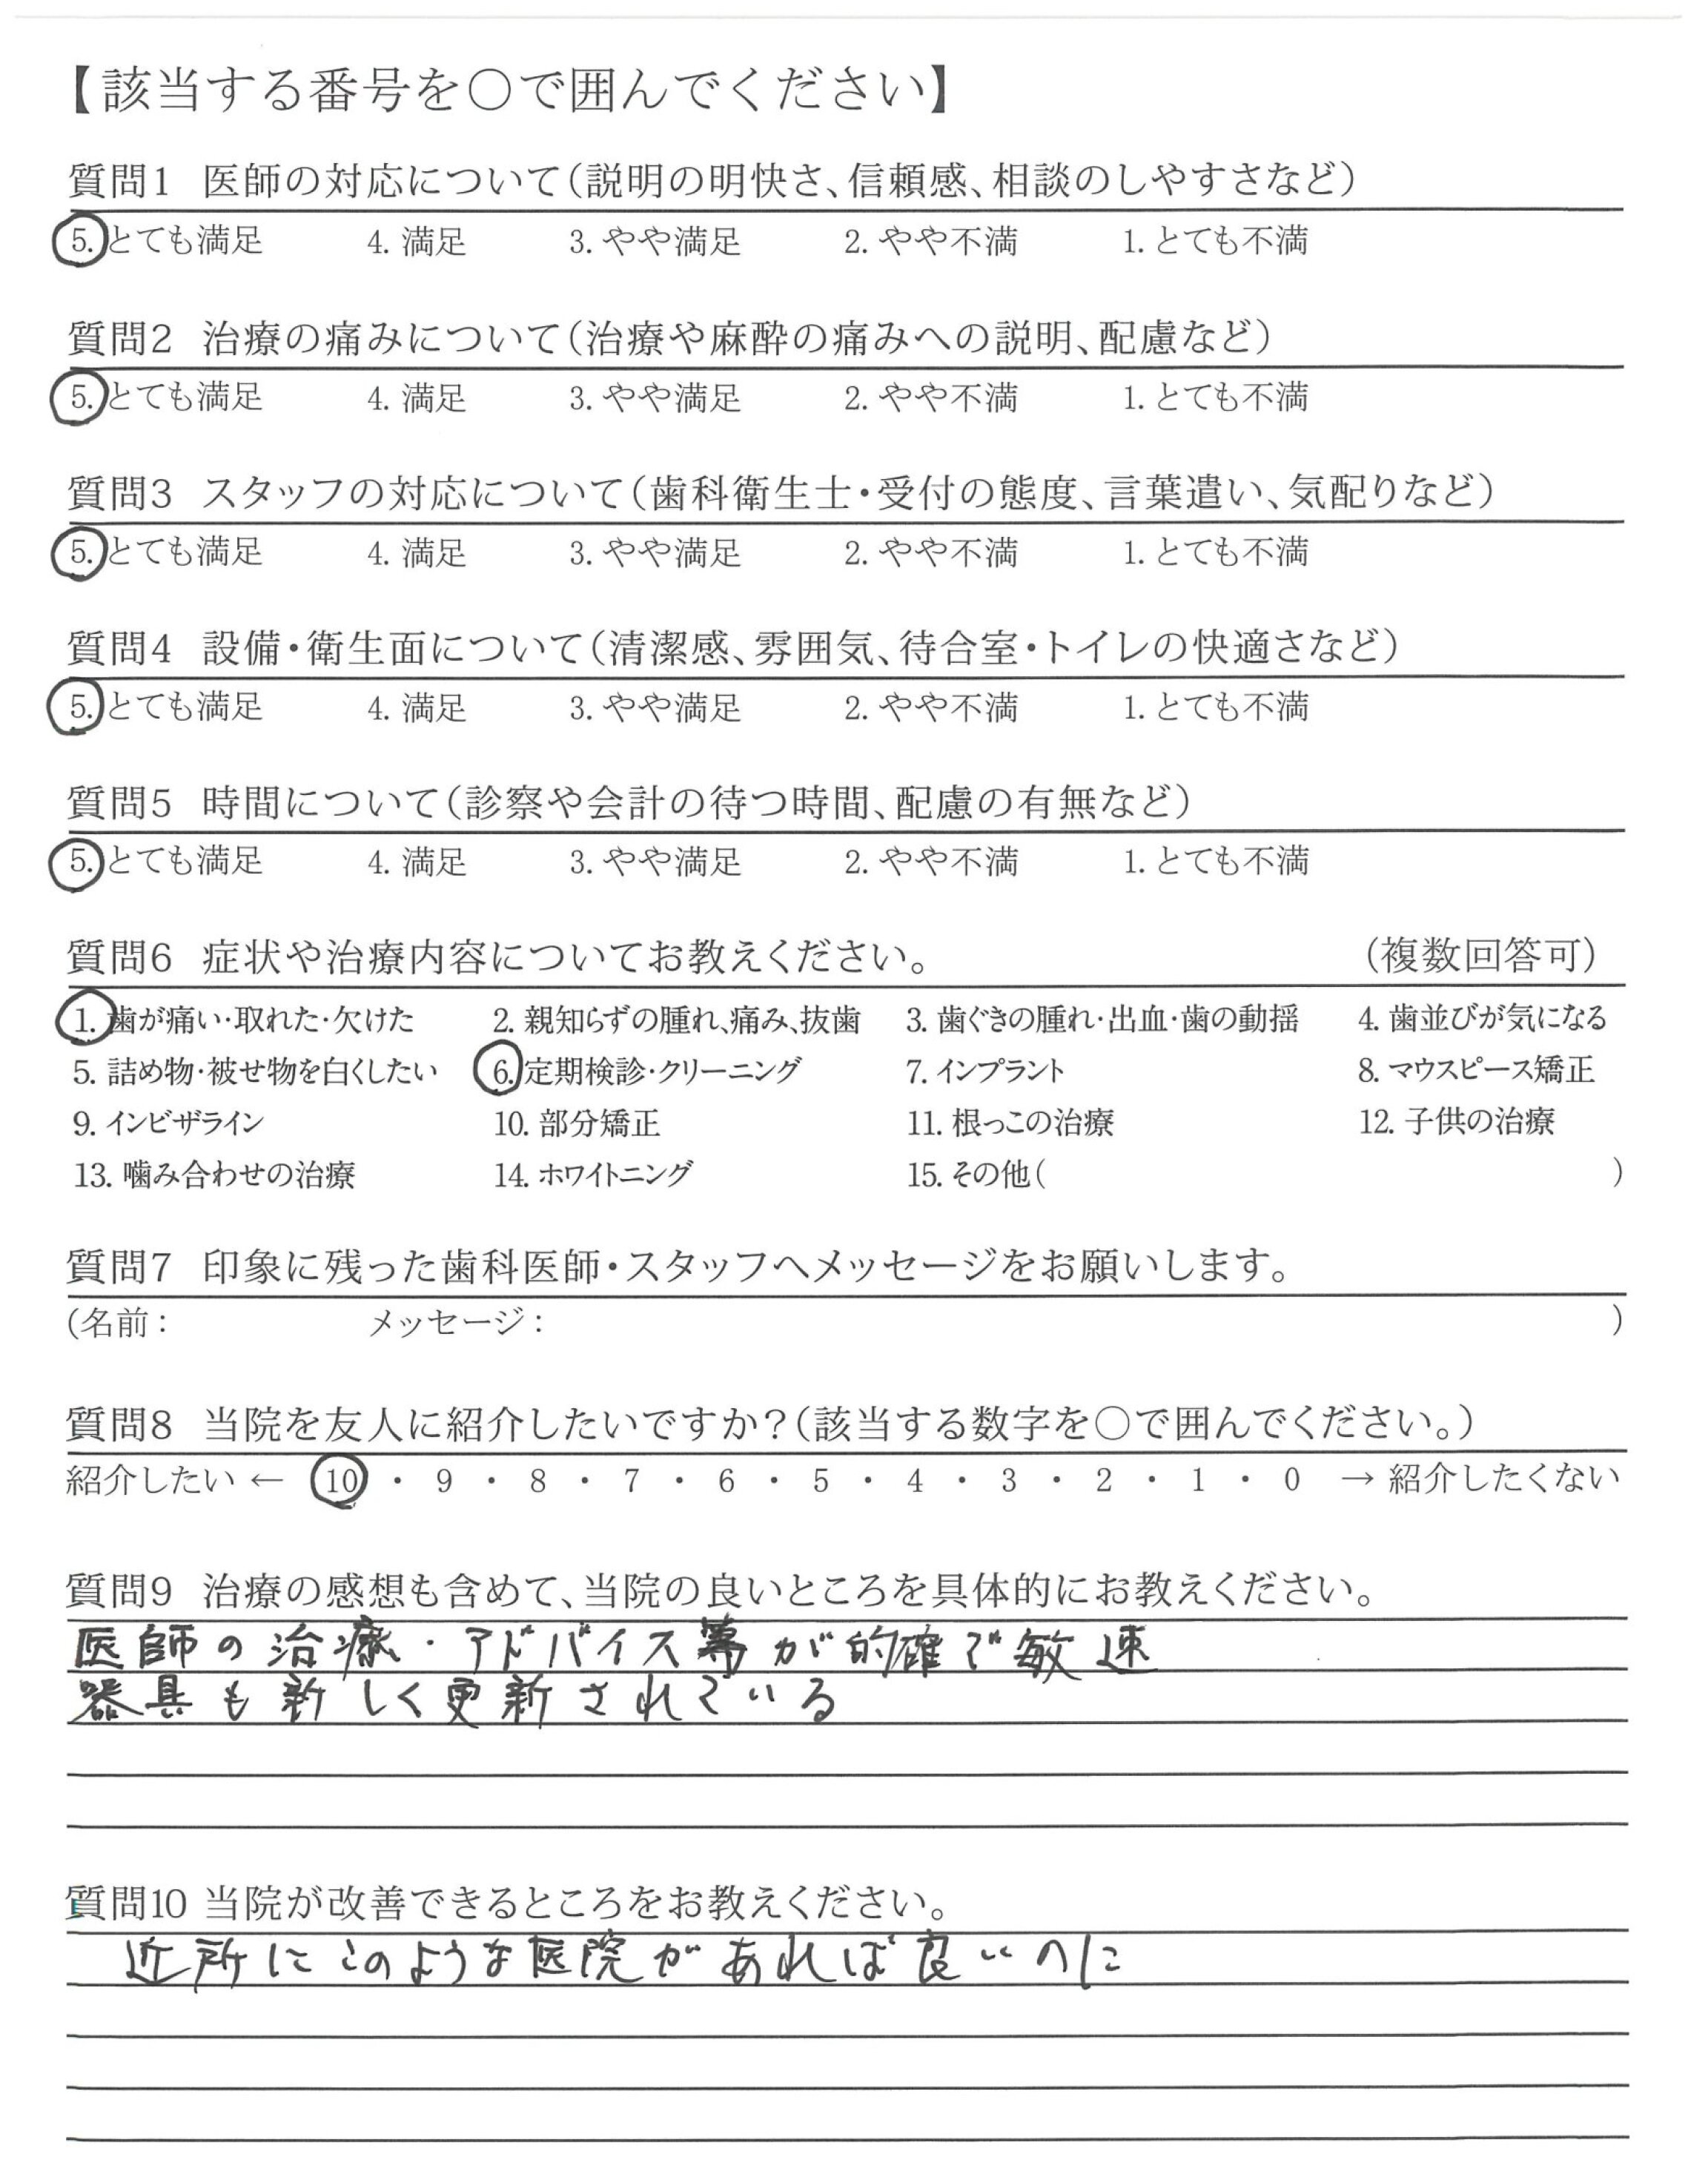 【該当する番号を○で囲んでください】
質問1 医師の対応について(説明の明快さ、信頼感、相談のしやすさなど)
5. とても満足 4. 満足 3. やや満足 2. やや不満 1. とても不満
質問2 治療の痛みについて(治療や麻酔の痛みへの説明、配慮など)
5. とても満足 4. 満足 3. やや満足 2. やや不満 1. とても不満
質問3 スタッフの対応について(歯科衛生士・受付の態度、言葉遣い、気配りなど)
5. とても満足 4. 満足 3. やや満足 2. やや不満 1. とても不満
質問4 設備・衛生面について(清潔感、雰囲気、待合室・トイレの快適さなど)
5. とても満足 4. 満足 3. やや満足 2. やや不満 1. とても不満
質問5 時間について(診察や会計の待つ時間、配慮の有無など)
5. とても満足 4. 満足 3. やや満足 2. やや不満 1. とても不満
質問6 症状や治療内容についてお教えください。 (複数回答可)
1. 歯が痛い・取れた・欠けた 2. 親知らずの腫れ、痛み、抜歯 3. 歯ぐきの腫れ・出血・歯の動揺 4. 歯並びが気になる
5. 詰め物・被せ物を白くしたい 6. 定期検診・クリーニング 7. インプラント 8. マウスピース矯正
9. インビザライン 10. 部分矯正 11. 根っこの治療 12. 子供の治療
13. 噛み合わせの治療 14. ホワイトニング 15. その他( )
質問7 印象に残った歯科医師・スタッフへメッセージをお願いします。
(名前: メッセージ: )
質問8 当院を友人に紹介したいですか?(該当する数字を○で囲んでください。)
紹介したい ← 10 ・ 9 ・ 8 ・ 7 ・ 6 ・ 5 ・ 4 ・ 3 ・ 2 ・ 1 ・ 0 → 紹介したくない
質問9 治療の感想も含めて、当院の良いところを具体的にお教えください。
医師の治療・アドバイス等が的確で敏速
器具も新しく更新されている
質問10 当院が改善できるところをお教えください。
近所にこのような医院があれば良いのに